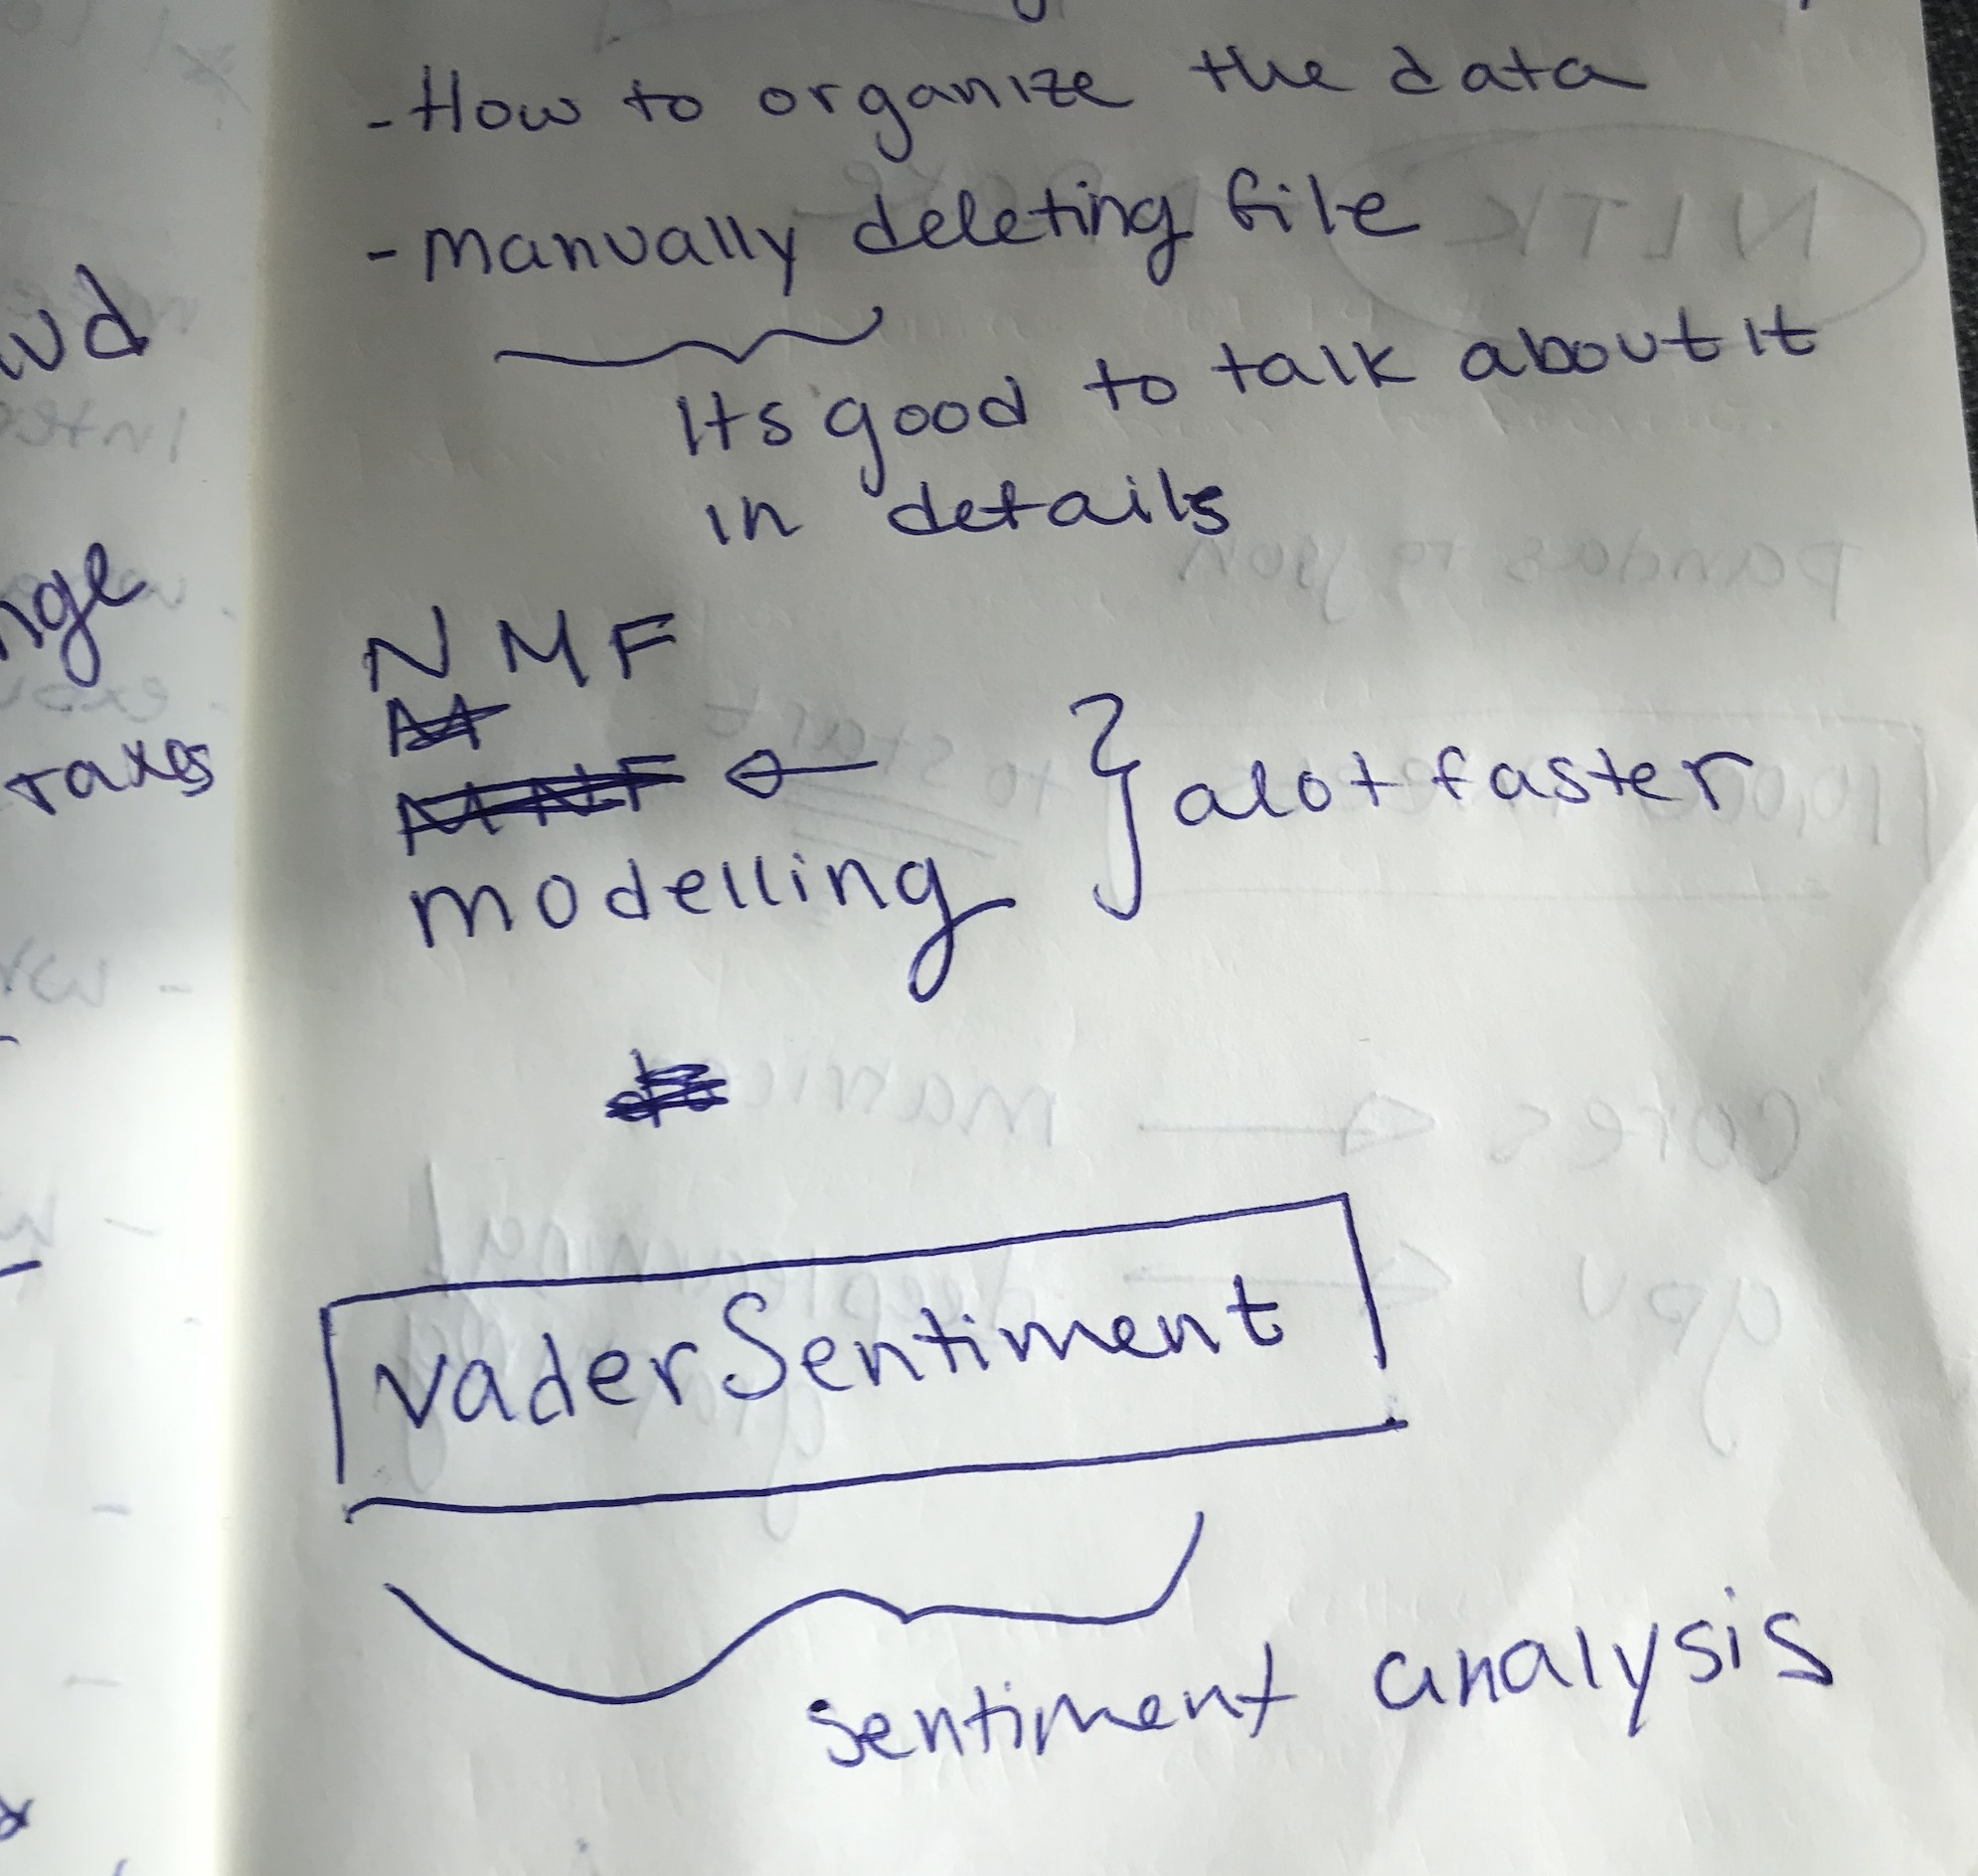 - How to organize the data
- Manually deleting file
Its good to talk about it
in details
NMF
modelling
alot faster
vaderSentiment
sentiment analysis